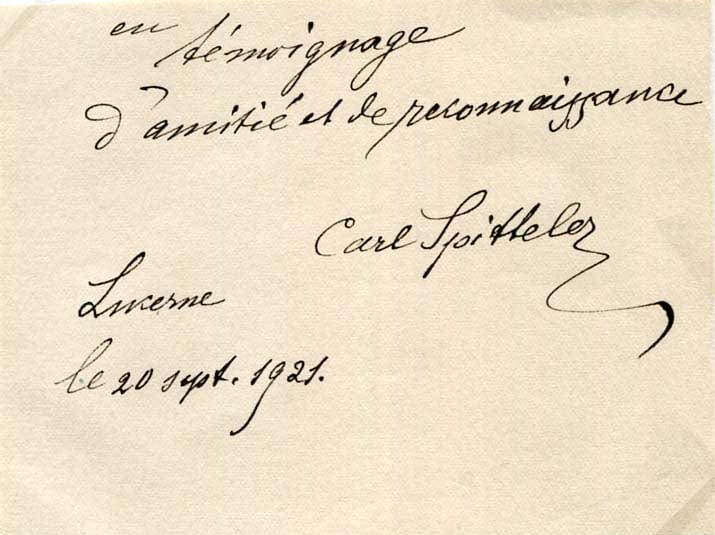 en témoignage
d'amitié et de reconnaissance
Carl Spitteler
Lucerne
le 20 sept. 1921.